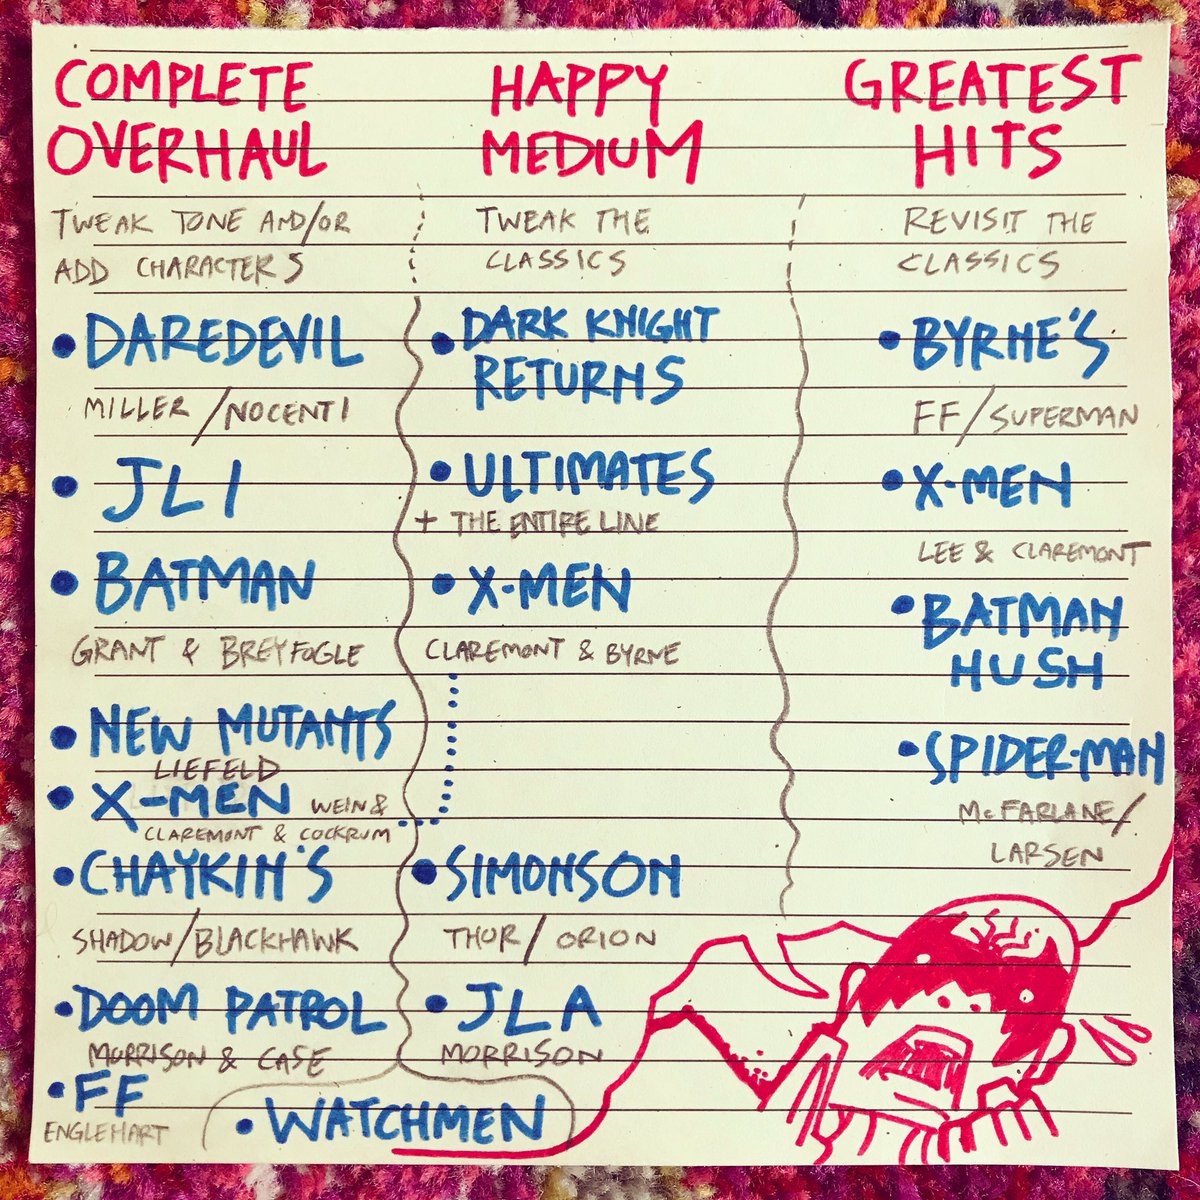 COMPLETE
OVERHAUL
TWEAK TONE AND/OR
ADD CHARACTERS
• DAREDEVIL
MILLER/NOCENTI
• JLI
• BATMAN
GRANT & BREYFOGLE
• NEW MUTANTS
LIEFELD
• X-MEN WEIN &
CLAREMONT & COCKRUM
• CHAYKIN'S
SHADOW/BLACKHAWK
• DOOM PATROL
MORRISON & CASE
• FF
ENGLEHART
HAPPY
MEDIUM
TWEAK THE
CLASSICS
• DARK KNIGHT
RETURNS
• ULTIMATES
+ THE ENTIRE LINE
• X-MEN
CLAREMONT & BYRNE
• SIMONSON
THOR/ORION
• JLA
MORRISON
• WATCHMEN
GREATEST
HITS
REVISIT THE
CLASSICS
• BYRNE'S
FF/SUPERMAN
• X-MEN
LEE & CLAREMONT
• BATMAN
HUSH
• SPIDER-MAN
McFARLANE/
LARSEN